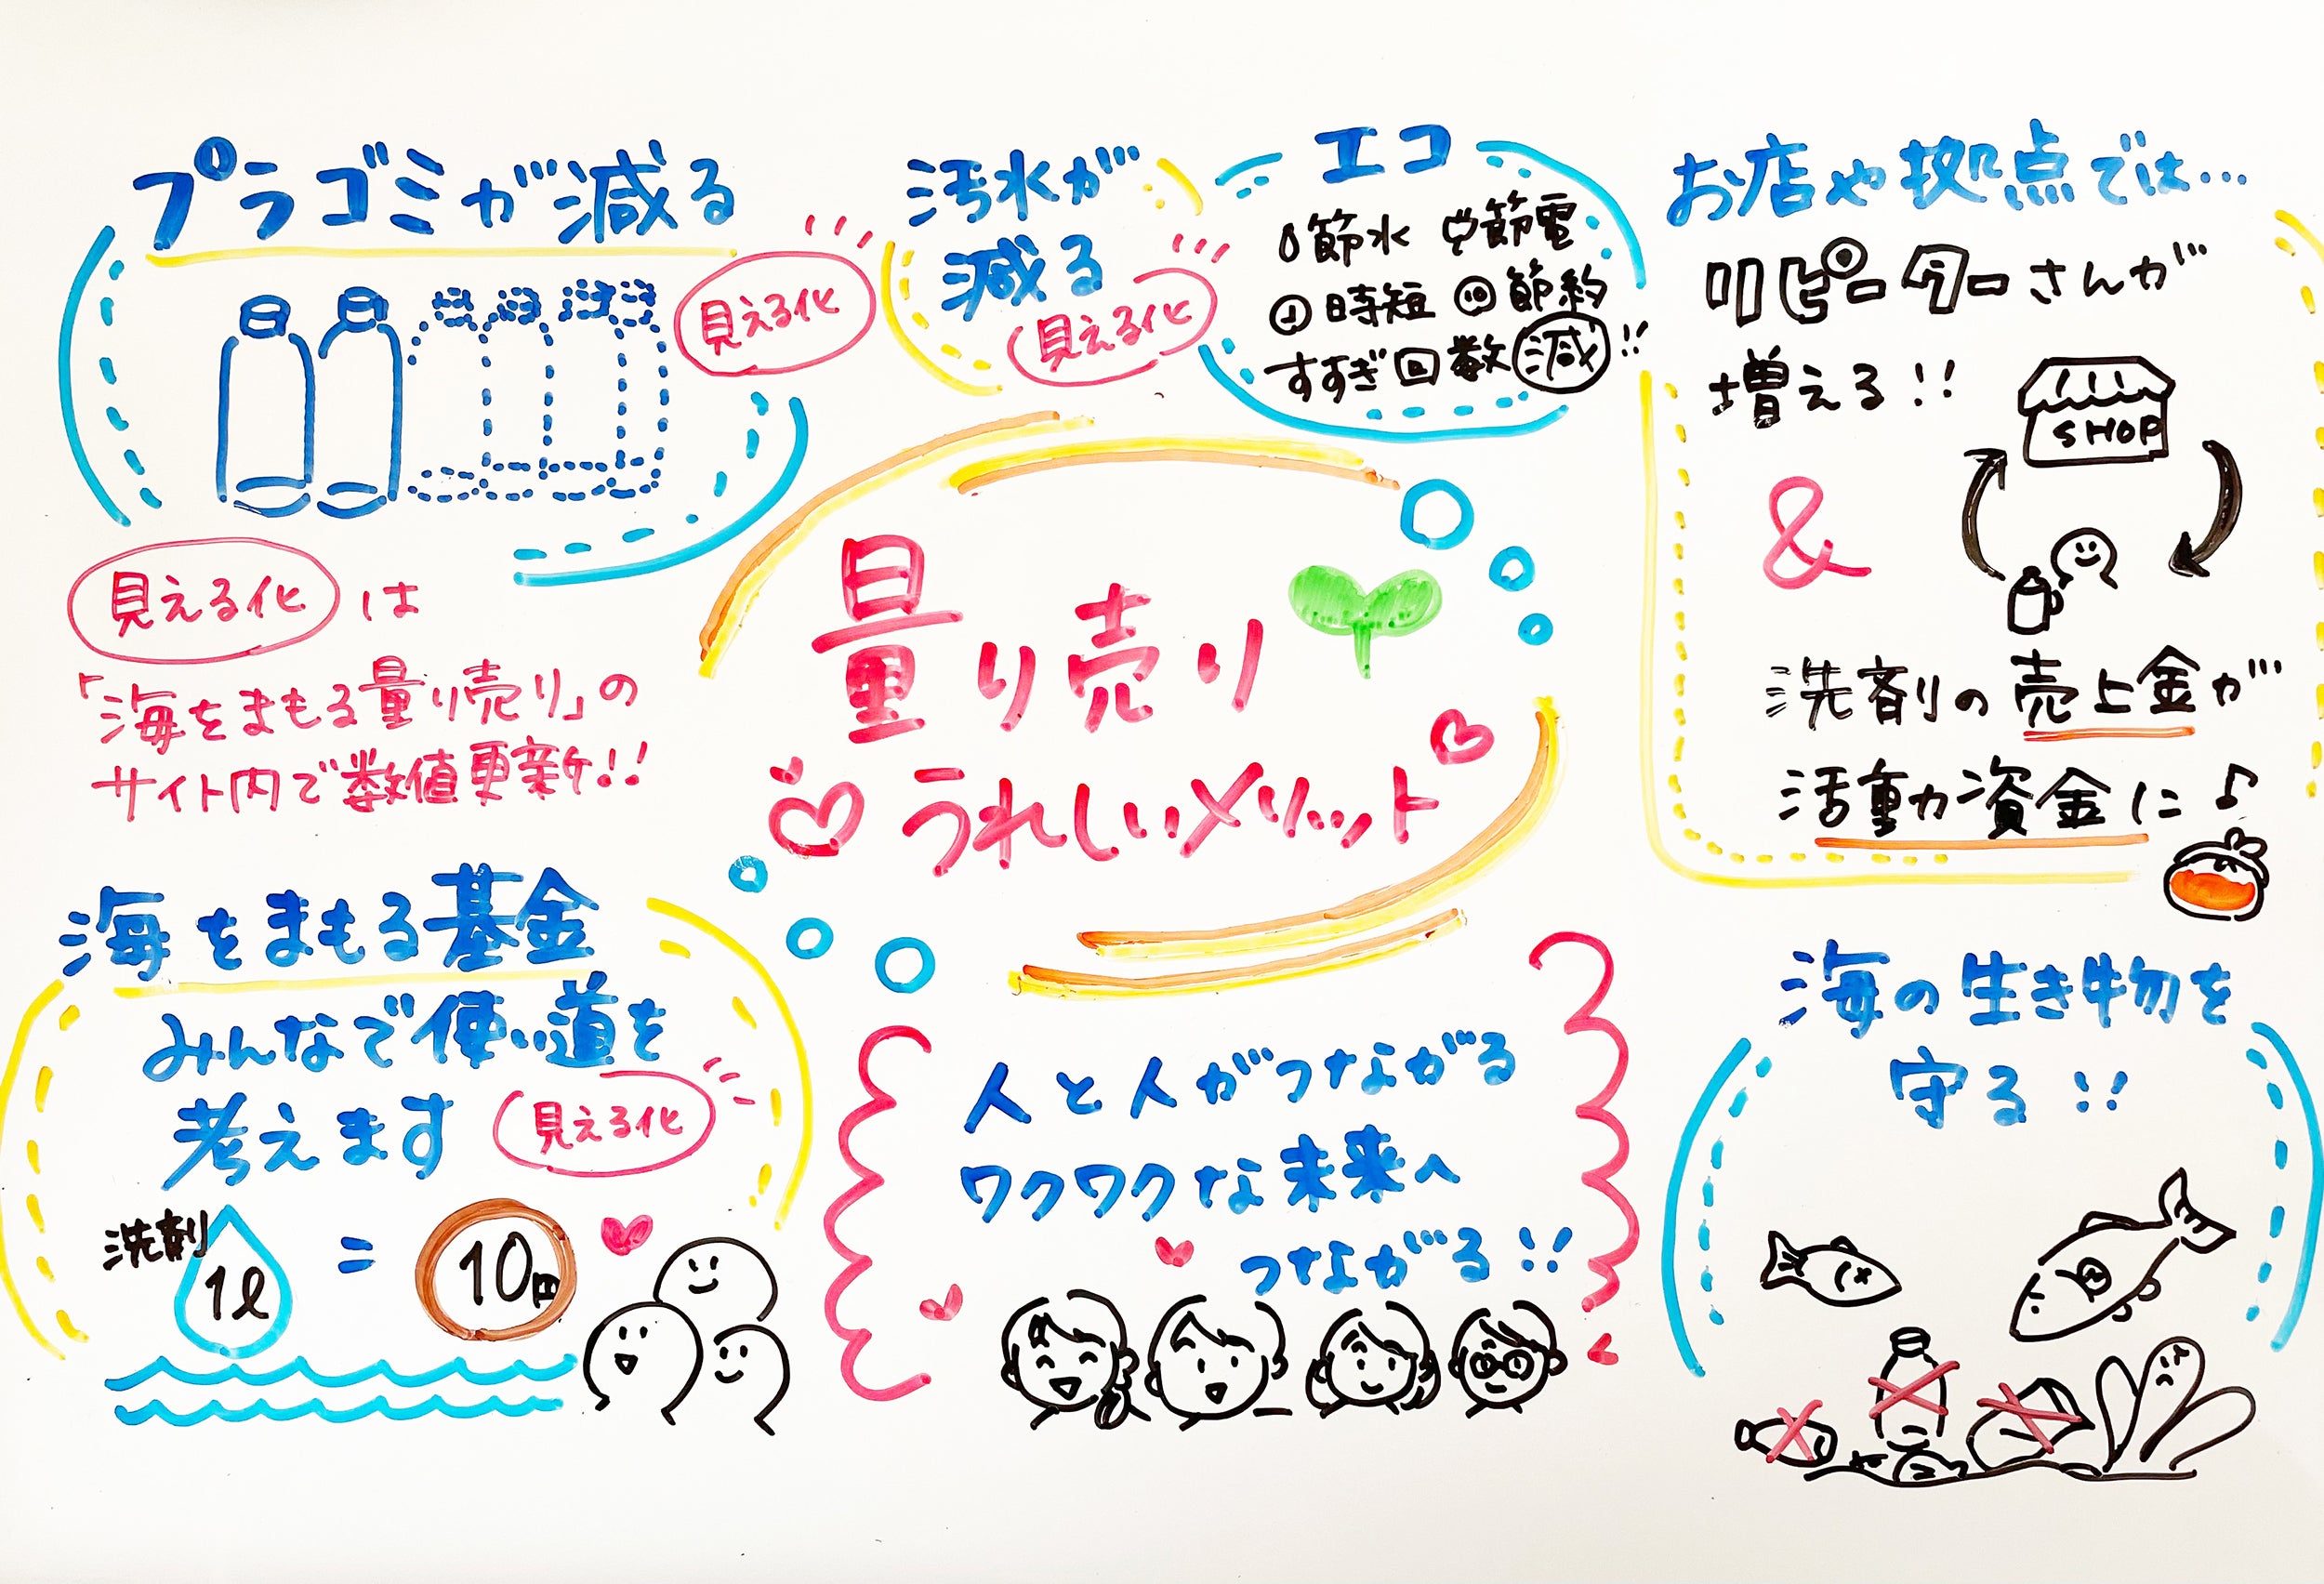 プラゴミが減る
見える化
汚水が
減る
見える化
エコ
節水 節電
時短 10 節約
すすぎ回数 減!!
お店や拠点では…
リピーターさんが
増える!!
SHOP
&
洗剤の売上金が
活動資金に♪
見える化は
「海をまもる量り売り」の
サイト内で数値更新!!
量り売り
うれしいメリット
海をまもる基金
みんなで使い道を
考えます
見える化
洗剤
1ℓ = 10円
人と人がつながる
ワクワクな未来へ
つながる!!
海の生き物を
守る!!